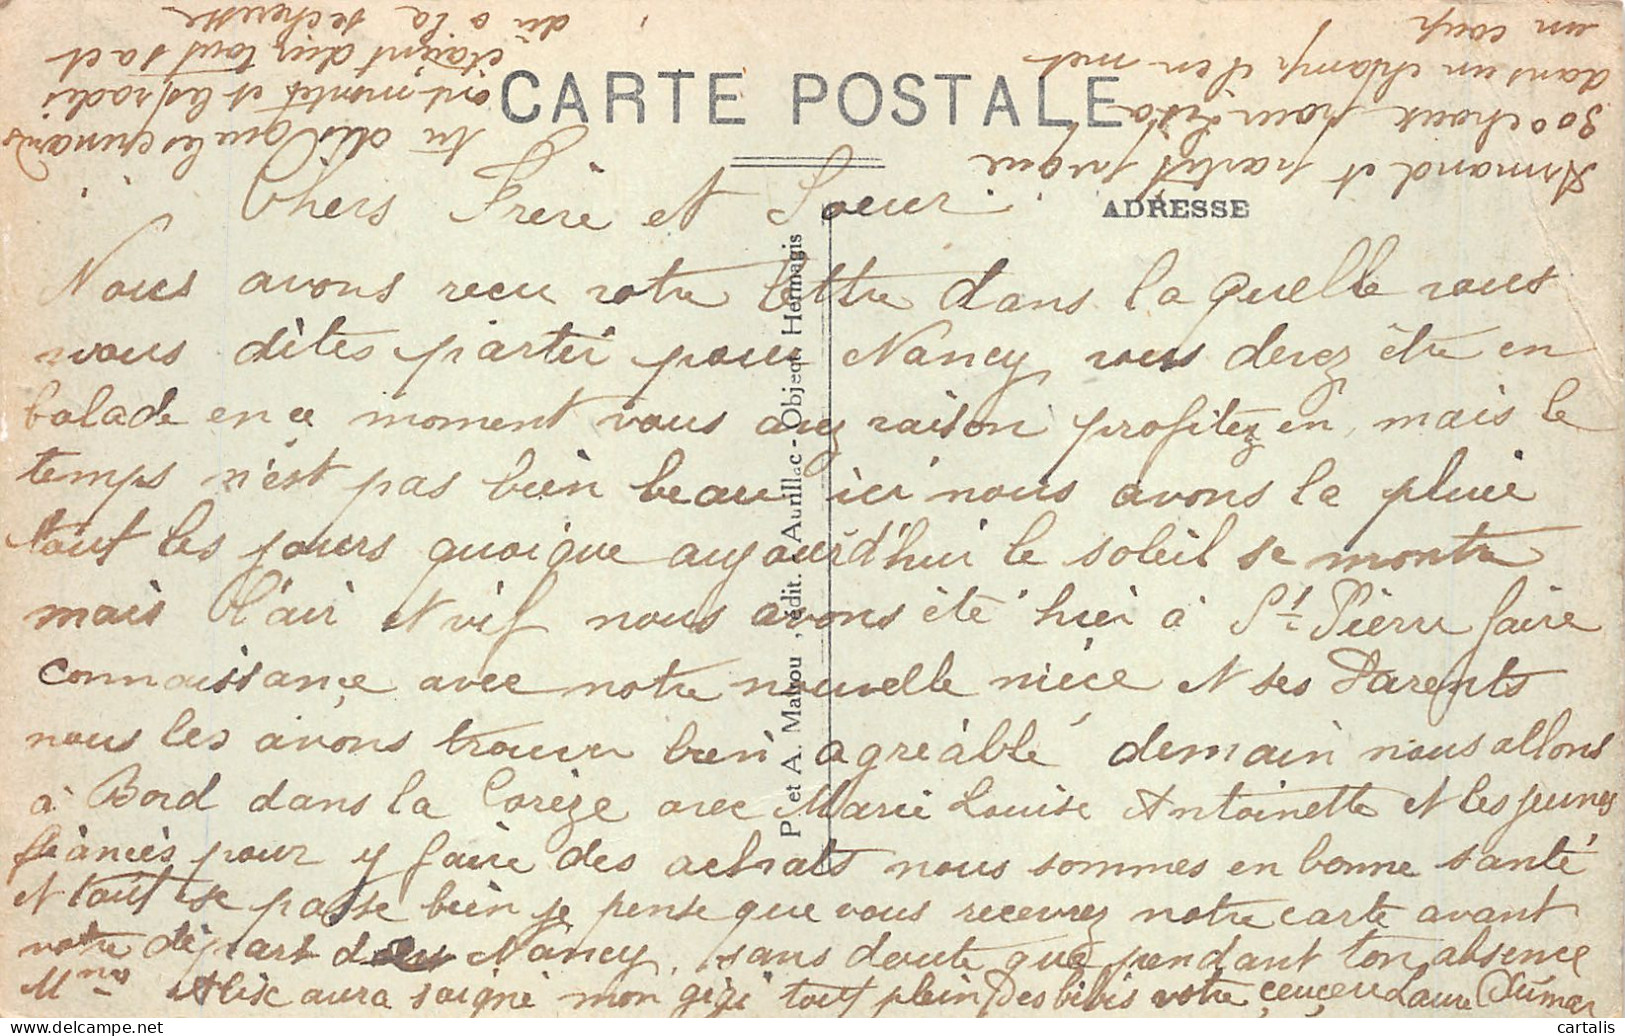 CARTE POSTALE
ADRESSE
Chers Frère et Soeur
Nous avons recu votre lettre dans la quelle vous
nous dites partir pour Nancy vous devez être en
balade en ce moment vous avez raison profitez en, mais le
temps n'est pas bien beau ici nous avons la pluie
tout les jours quoique aujourd'hui le soleil se montre
mais l'air et vif nous avons été hier à St Pierre faire
connaissance avec notre nouvelle nièce et ses Parents
nous les avons trouver bien agréable demain nous allons
à Bord dans la Corèze avec Marie Louise Antoinette et les jeunes
fiancés pour y faire des achats nous sommes en bonne santé
et tout se passe bien je pense que vous recevrez notre carte avant
votre départ de Nancy, sans doute que pendant ton absence
Mme Alise aura soigné mon gigi tout plein des bibis votre Laure
Armand et partit
300 choux pour
dans un champ d'en met
un coup
tu dis que les
ont montés et les radis
étaient dur tout sa et
dû a la sécheresse
P. et A. Malrou, édit. Aurillac - Object. Hermagis
cartalis